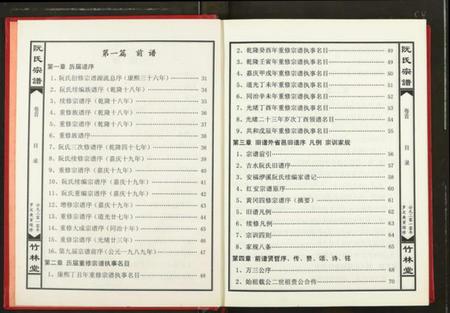 阮氏宗譜
卷首
目录
竹林堂
第一篇 前谱
第一章 历届谱序
1、阮氏创修宗谱源流总序（康熙三十六年） 31
2、阮氏续编族谱序（乾隆十八年） 33
3、续修宗谱序（乾隆十八年） 34
4、重修族谱序（乾隆十八年） 35
5、重修族谱序 36
6、阮氏三次修谱序（乾隆四十七年） 37
7、阮氏续修宗谱序（嘉庆十九年） 38
8、阮氏重修宗谱序（嘉庆十九年） 39
9、阮氏宗谱序（嘉庆十九年） 40
10、阮氏续编宗谱序（嘉庆十九年） 41
11、阮氏重编宗谱序（嘉庆十九年） 42
12、增修宗谱序（嘉庆十九年） 43
13、重修宗谱序（道光廿七年） 44
14、重修大成宗谱序（同治十年） 45
15、重修宗谱序（光绪廿三年） 46
16、第九届宗谱前序（公元一九八九年） 47
第二章 历届重修宗谱执事名目
1、康熙丁丑年重修宗谱执事名目 48
2、乾隆癸酉年重修宗谱执事名目 49
3、乾隆壬寅年重修宗谱执事名目 49
4、嘉庆甲戌年重修宗谱执事名目 50
5、道光丁未年重修宗谱执事名目 51
6、同治辛未年重修宗谱执事名目
7、光绪丁酉年重修宗谱执事名目
8、光绪二十三年岁次丁酉领谱名目
9、共和戊辰年重修宗谱执事名目 55
第三章 旧谱外省邑旧谱序 凡例 宗训家规
1、宗谱前引 56
2、吉水阮氏旧谱序 57
3、安福洢溪阮氏续编家谱记 58
4、红安宗谱原序
5、黄冈四修宗谱序（摘要）
6、旧谱凡例
7、续修凡例
8、宗训四则 64
9、家规八条 65
第四章 前谱贤哲序、传、赞、颂、诗、铭
1、万三公序 68
2、始祖载公二世祖贵公合传 70
阮氏宗譜
卷首
目录
竹林堂